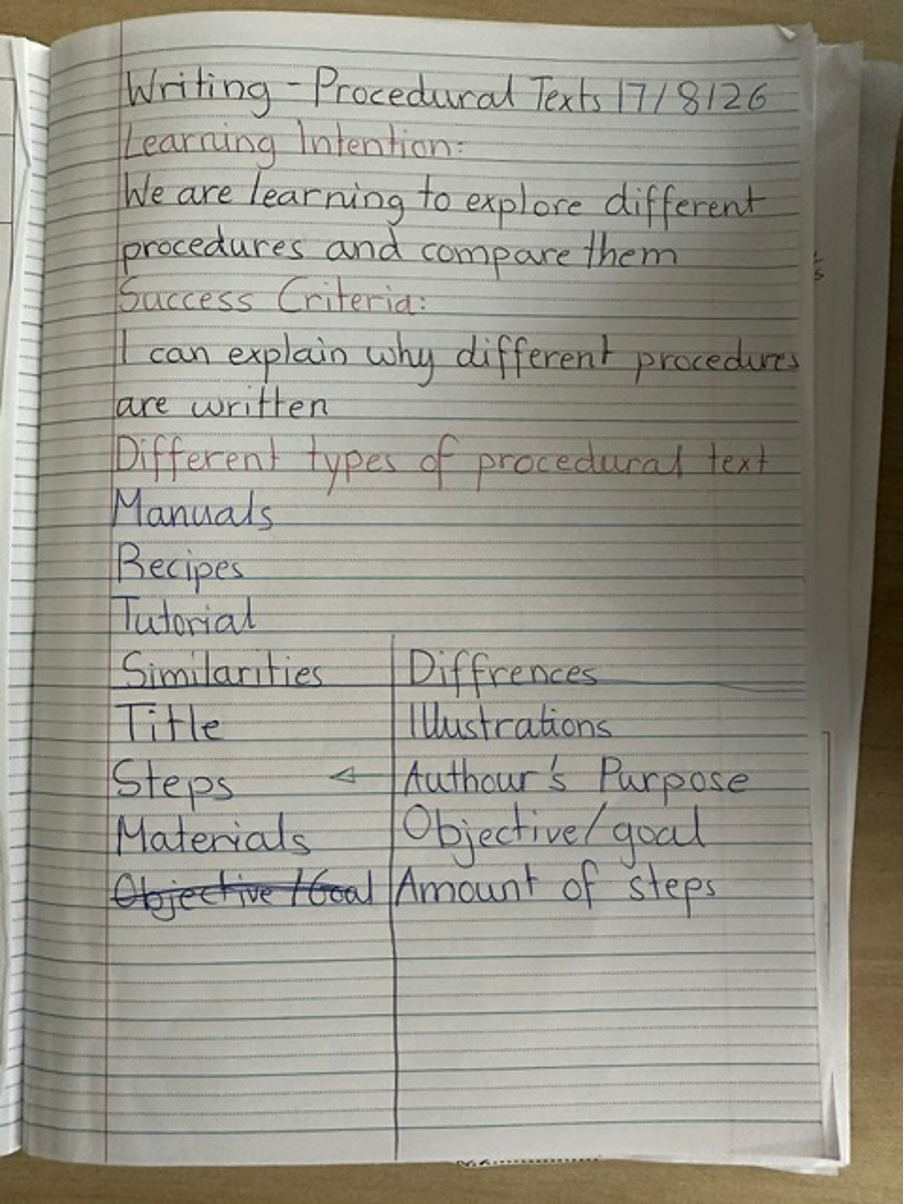 Writing - Procedural Texts 17/8/26
Learning Intention:
We are learning to explore different
procedures and compare them
Success Criteria:
I can explain why different procedures
are written
Different types of procedural text
Manuals
Recipes
Tutorial
Similarities Diffrences
Title Illustrations
Steps Authour's Purpose
Materials Objective/goal
Objective/Goal Amount of steps